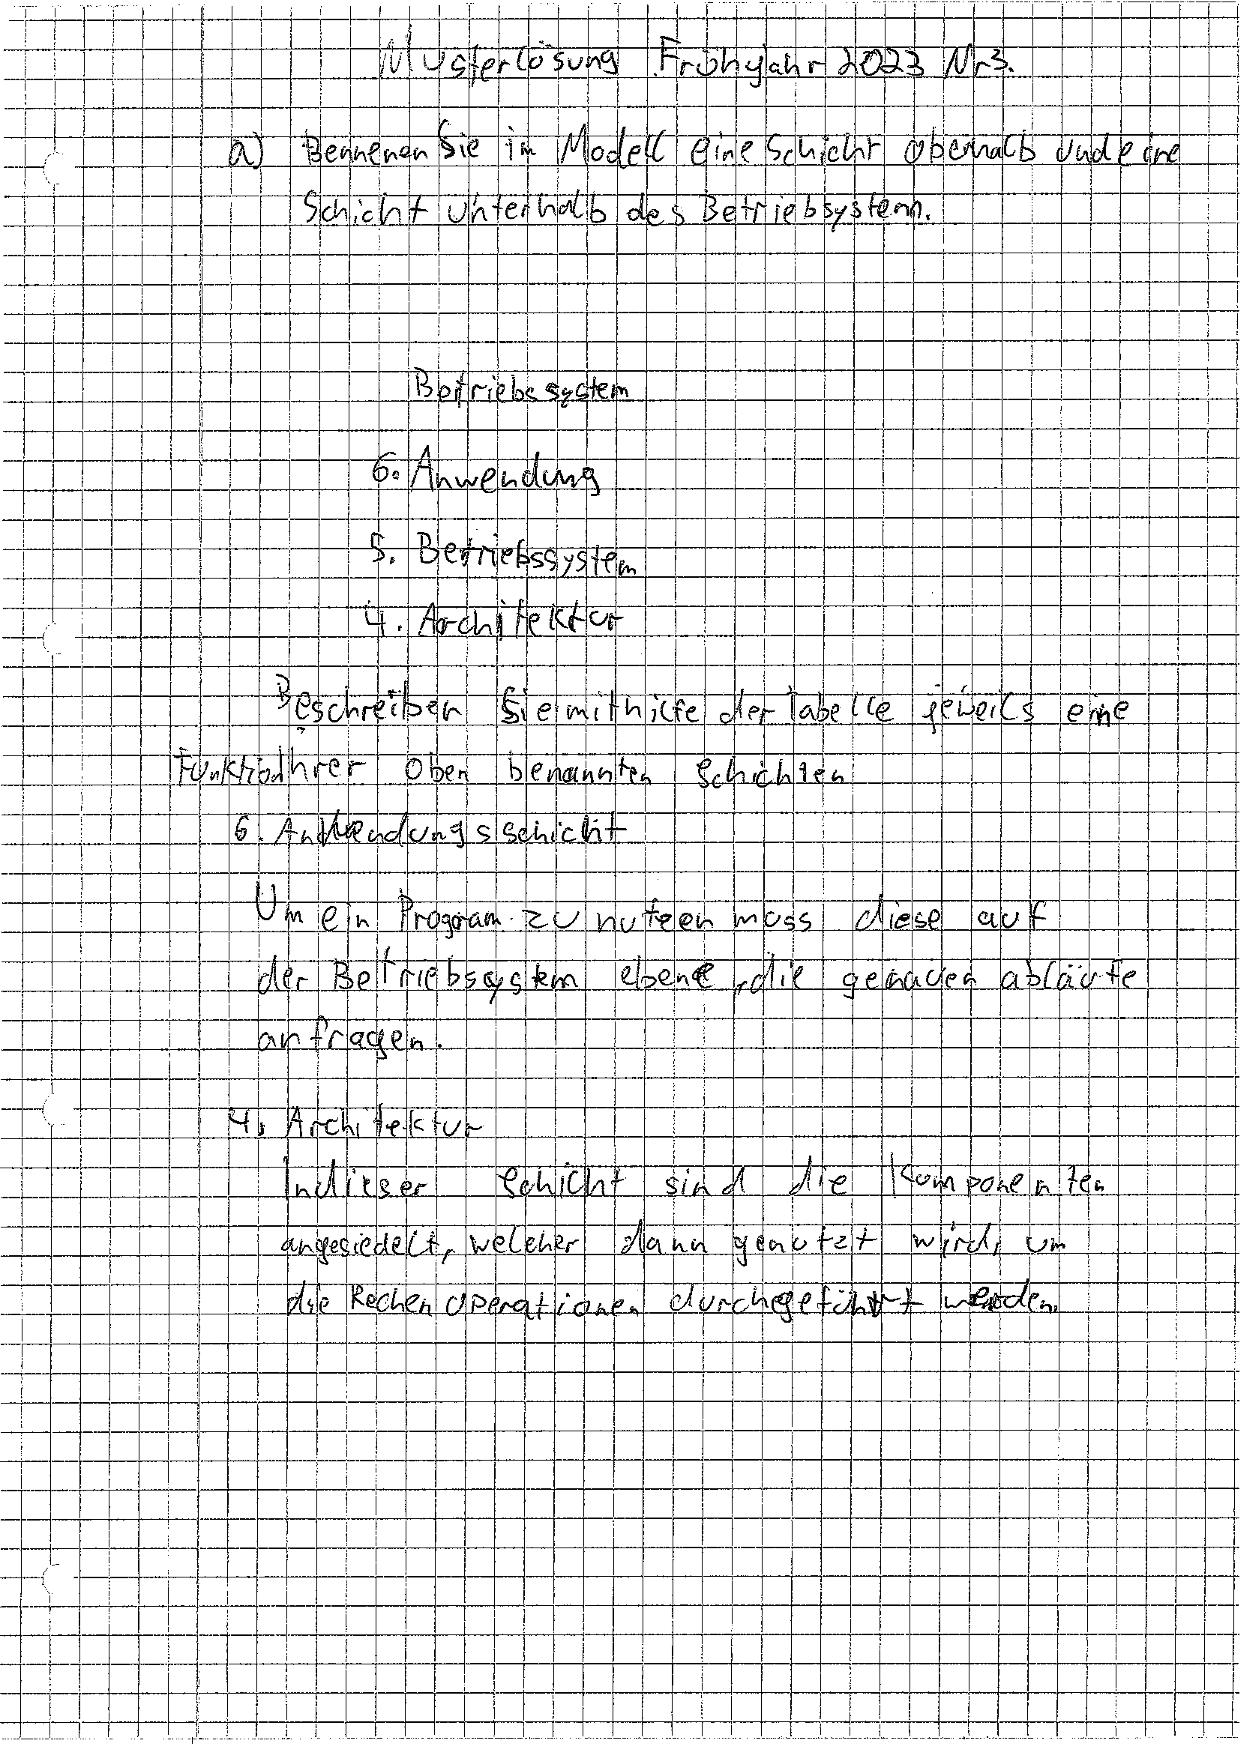 Musterlösung Frühjahr 2023 Nr3.
a) Bennenen Sie im Modell eine Schicht oberhalb und eine
Schicht unterhalb des Betriebsystem.
Betriebssystem
6. Anwendung
5. Betriebssystem
4. Architektur
Beschreiben Sie mithilfe der Tabelle jeweils eine
Funktion Ihrer oben benannten Schichten
6. Anwendungsschicht
Um ein Program zu nutzen muss diese auf
der Betriebsystem ebene, die genauen abläufe
anfragen.
4. Architektur
In dieser Schicht sind die Komponenten
angesiedelt, welcher dann genutzt wird, um
die Rechen operationen durchgeführt werden.